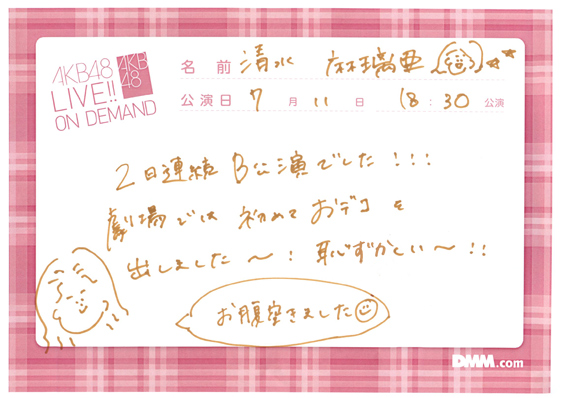 AKB48
LIVE!!
ON DEMAND
AKB
48
名前 清水 麻璃亜
公演日 7月 11日 18:30 公演
2日連続 B公演でした!!!
劇場では 初めて おデコを
出しました〜! 恥ずかしい〜!!
お腹空きました
DMM.com